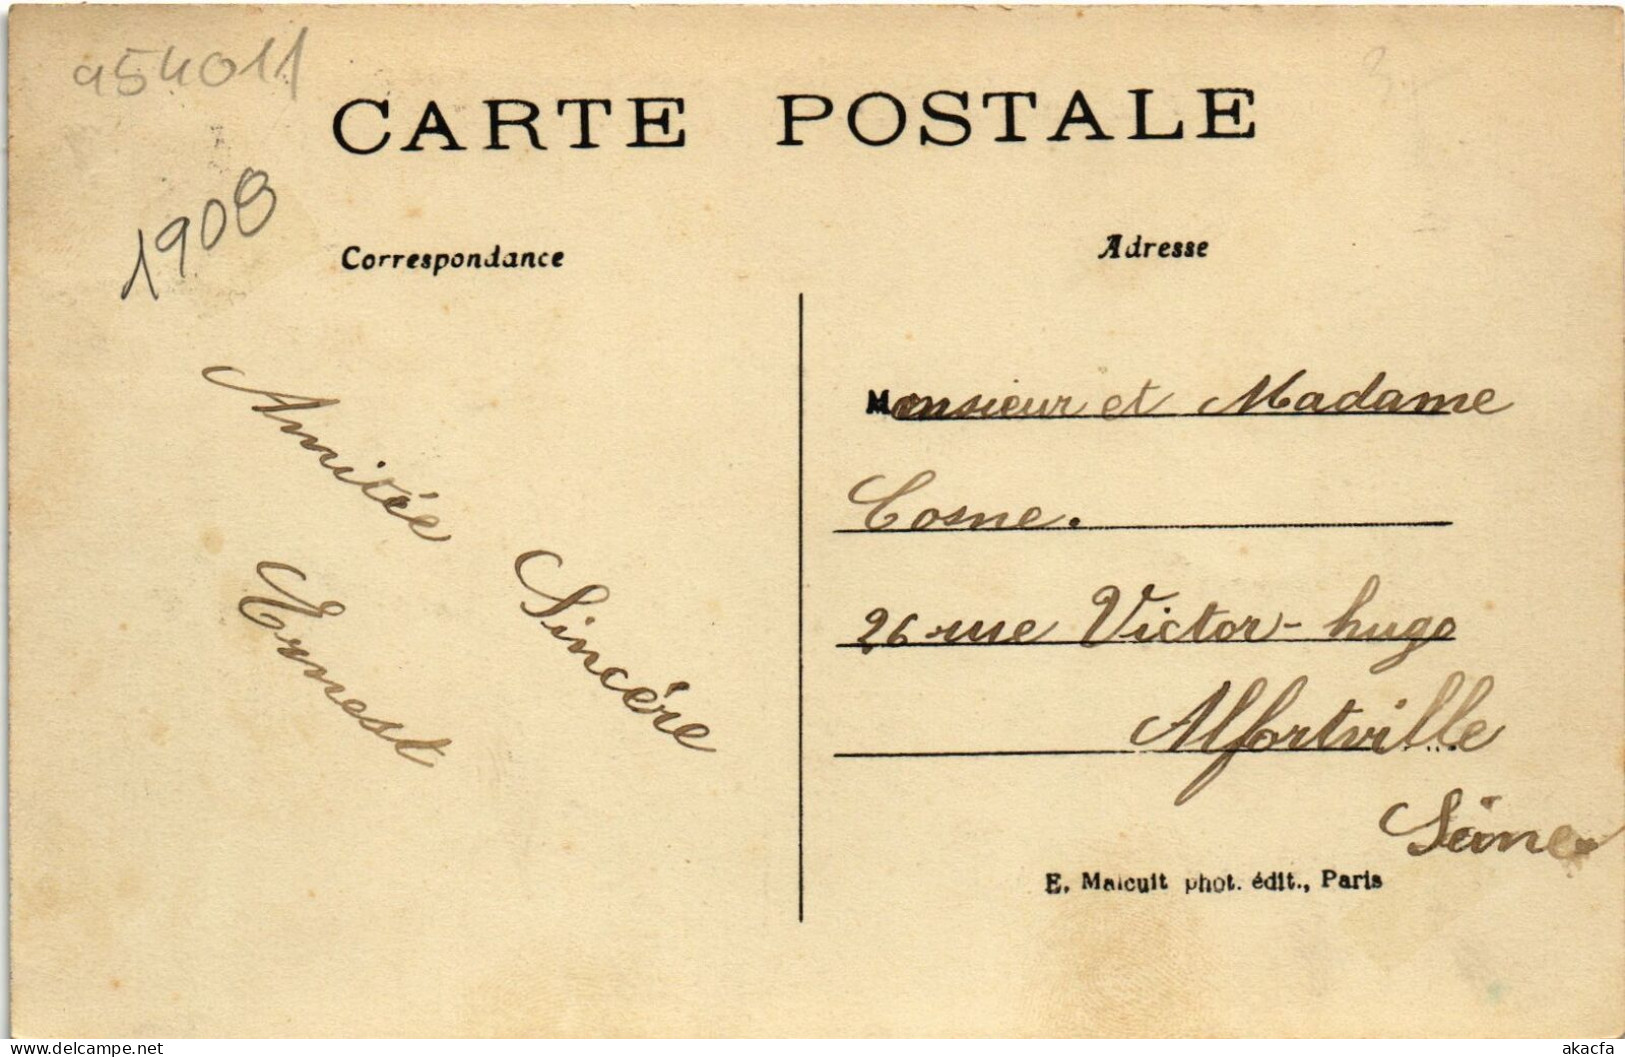 954011
CARTE POSTALE
1908
Correspondance
Adresse
Amitée
Sincére
Ernest
Monsieur et Madame
Cosne.
26 rue Victor-hugo
Alfortville
Seine
E. Malcuit phot. édit., Paris
www.delcampe.net
akacfa